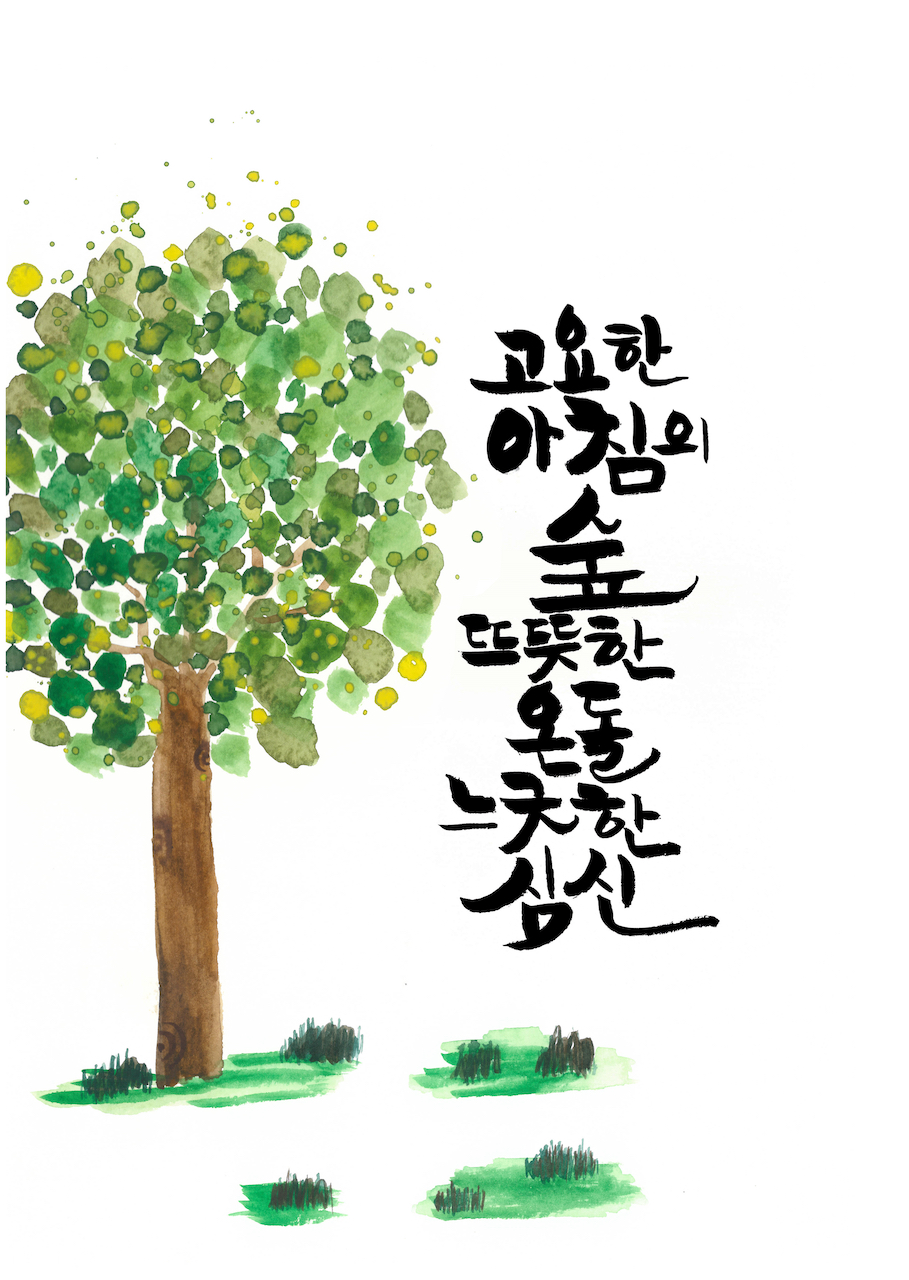 고요한
아침의
숲
뜨뜻한
온돌
느긋한
심신